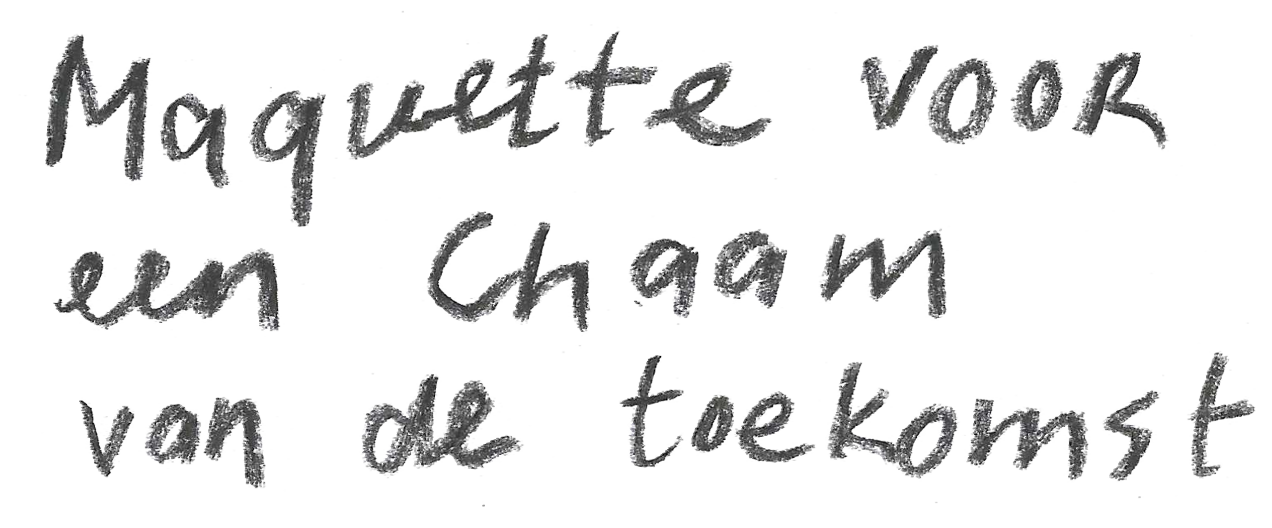 Maquette voor
een Chaam
van de toekomst